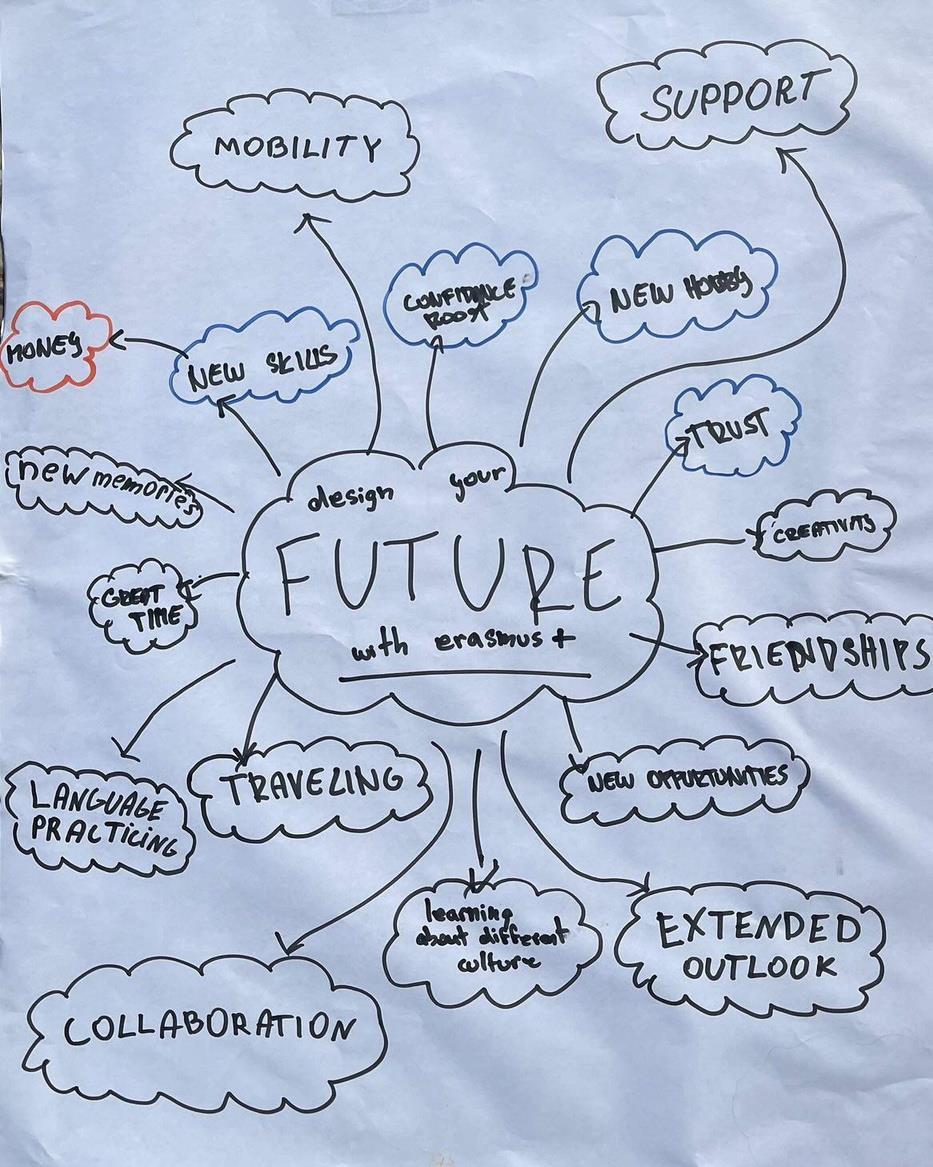 SUPPORT
MOBILITY
CONFIDANCE
BOOST
NEW HOBBY
MONEY
NEW SKILLS
TRUST
new memories
design your
FUTURE
with erasmus +
CREATIVITY
GREAT
TIME
FRIENDSHIPS
LANGUAGE
PRACTICING
TRAVELING
NEW OPPURTUNITIES
learning
about different
culture
EXTENDED
OUTLOOK
COLLABORATION